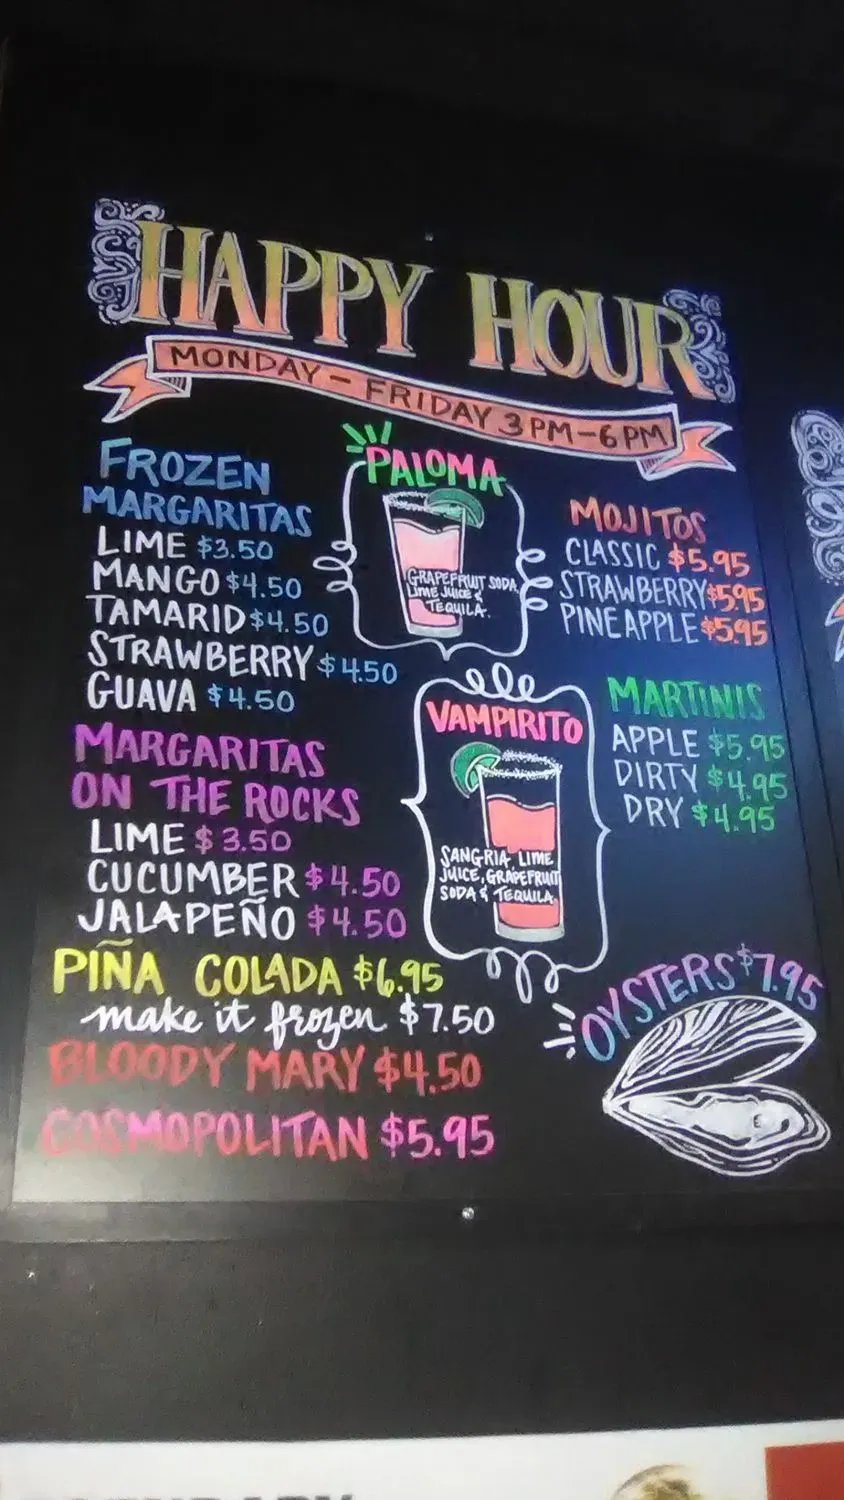 HAPPY HOUR
MONDAY - FRIDAY 3 PM - 6 PM
FROZEN
MARGARITAS
LIME $3.50
MANGO $4.50
TAMARID $4.50
STRAWBERRY $4.50
GUAVA $4.50
MARGARITAS
ON THE ROCKS
LIME $3.50
CUCUMBER $4.50
JALAPEÑO $4.50
PIÑA COLADA $6.95
make it frozen $7.50
BLOODY MARY $4.50
COSMOPOLITAN $5.95
PALOMA
GRAPEFRUIT SODA,
LIME JUICE &
TEQUILA.
VAMPIRITO
SANGRIA, LIME
JUICE, GRAPEFRUIT
SODA & TEQUILA
MOJITOS
CLASSIC $5.95
STRAWBERRY $5.95
PINEAPPLE $5.95
MARTINIS
APPLE $5.95
DIRTY $4.95
DRY $4.95
OYSTERS $7.95